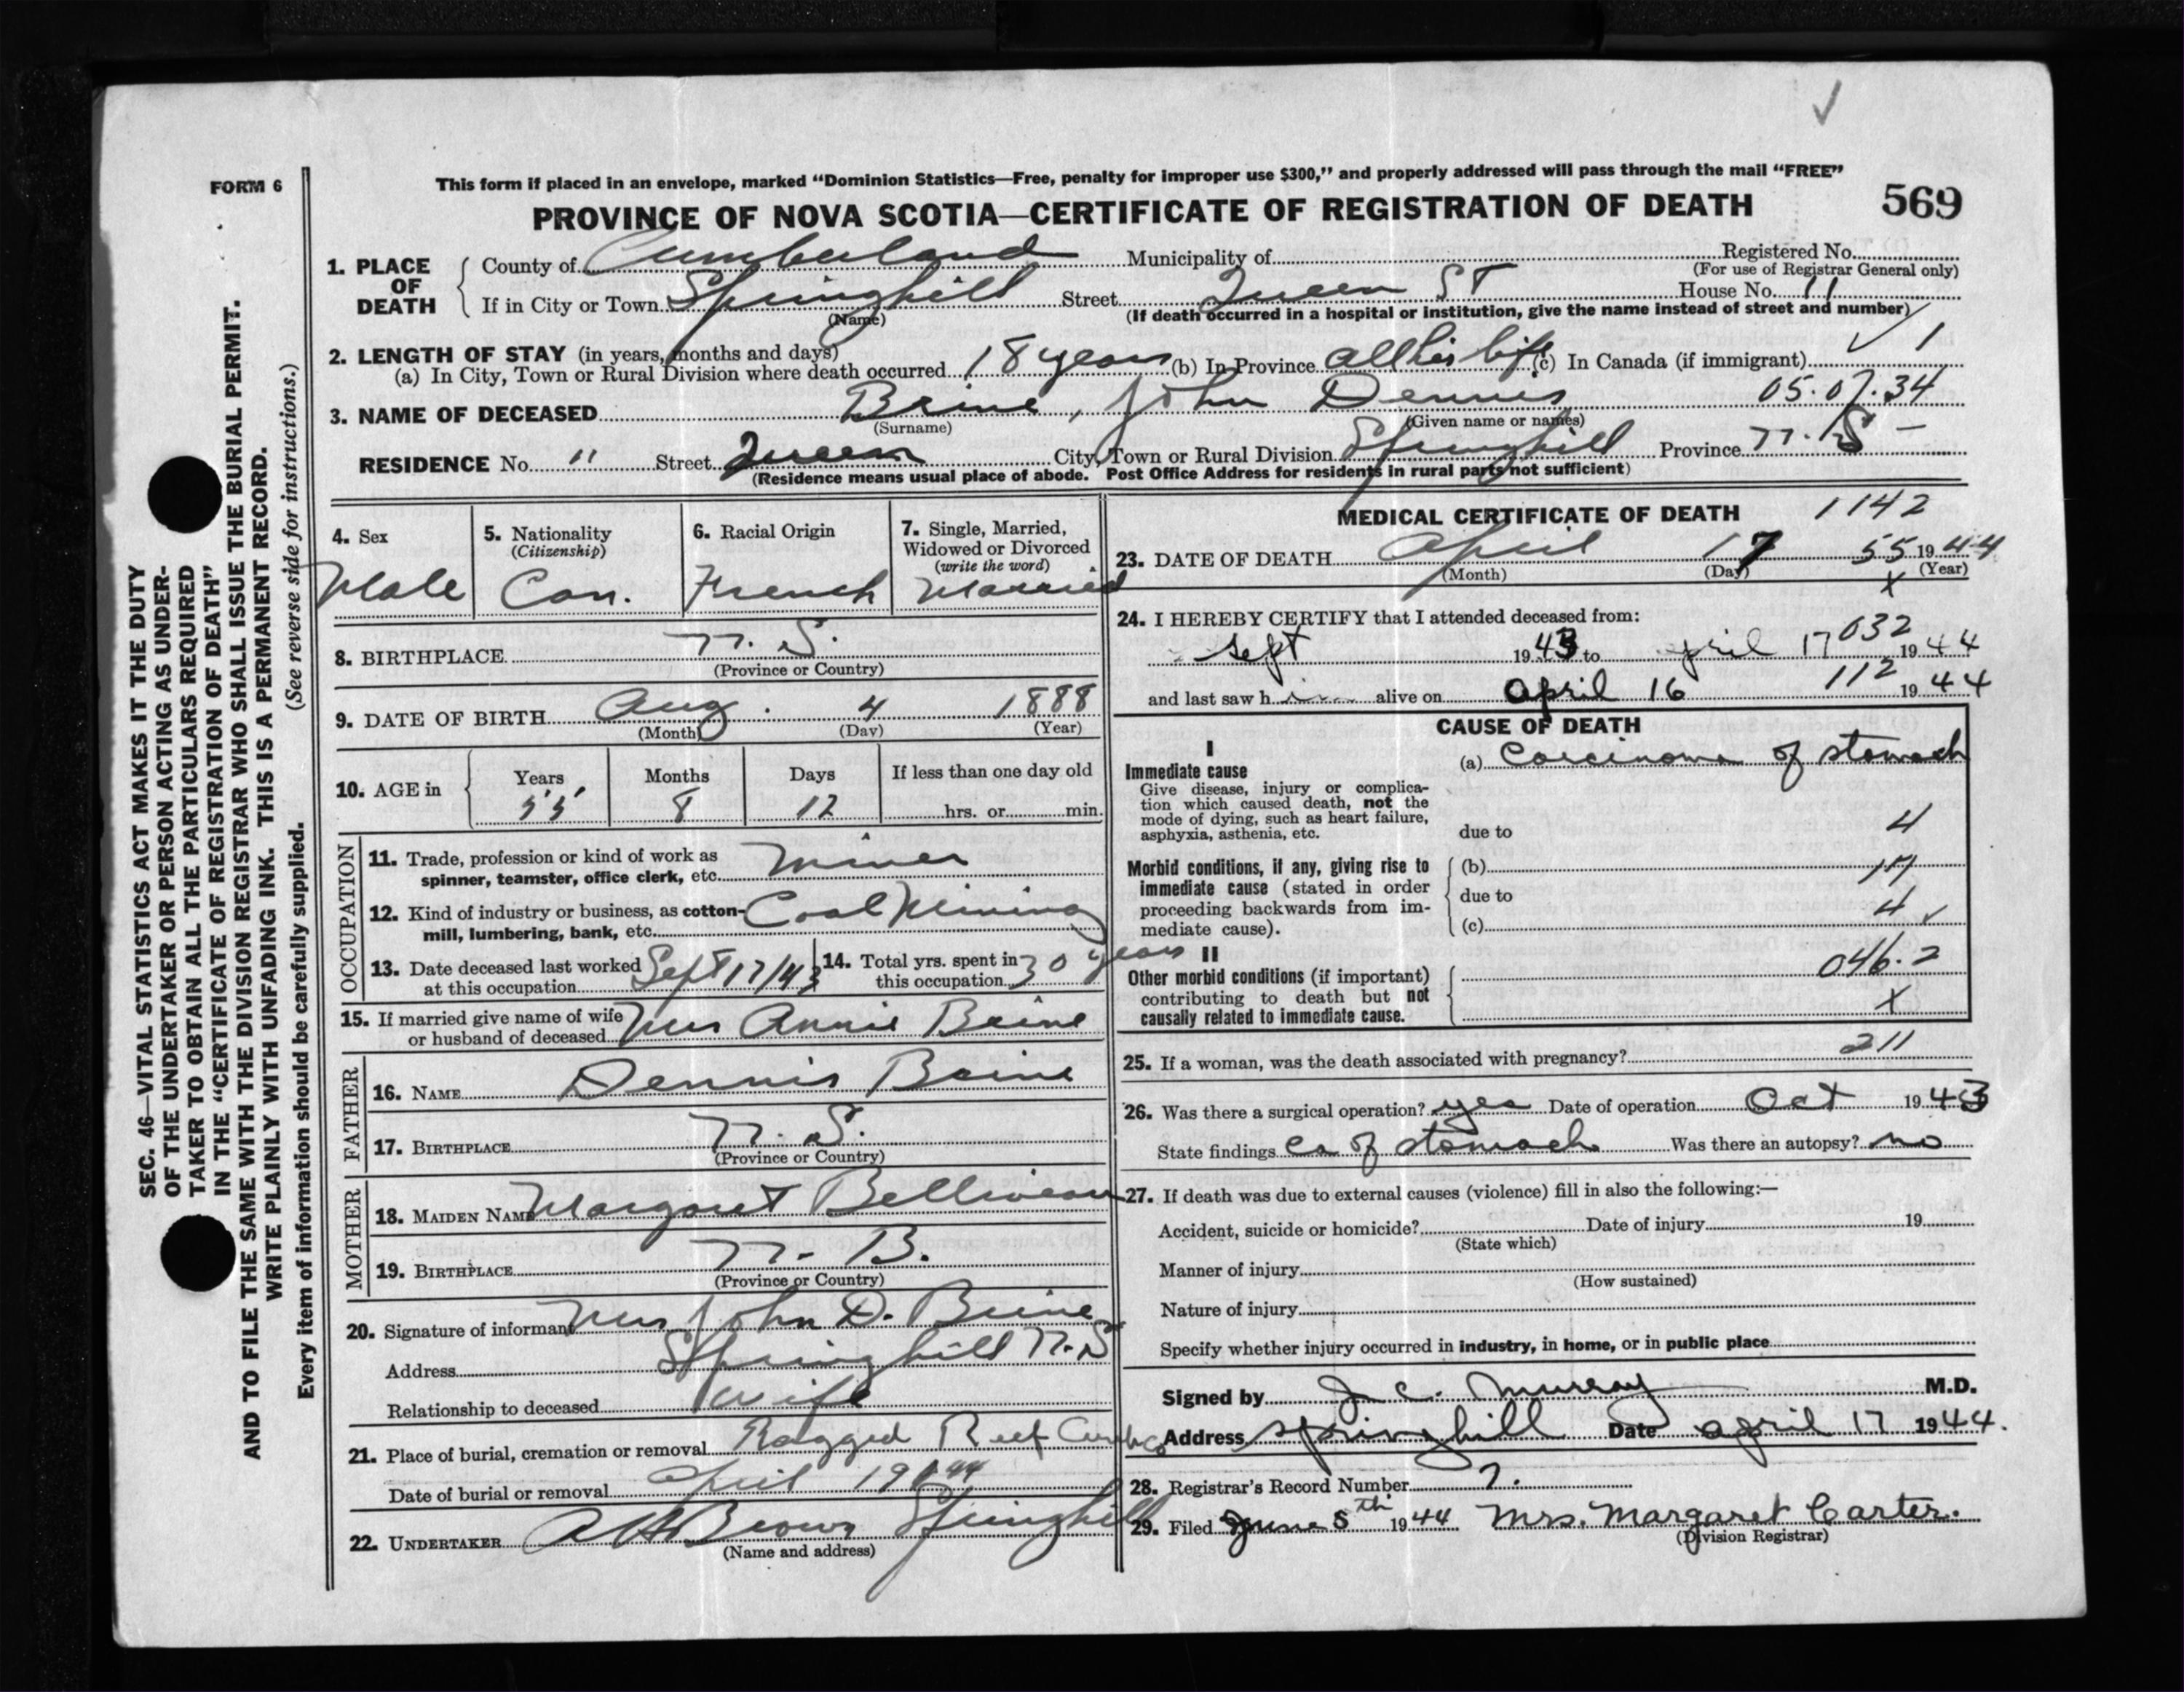 FORM 6
This form if placed in an envelope, marked “Dominion Statistics—Free, penalty for improper use $300,” and properly addressed will pass through the mail “FREE”
PROVINCE OF NOVA SCOTIA—CERTIFICATE OF REGISTRATION OF DEATH 569
SEC. 46—VITAL STATISTICS ACT MAKES IT THE DUTY
OF THE UNDERTAKER OR PERSON ACTING AS UNDER-
TAKER TO OBTAIN ALL THE PARTICULARS REQUIRED
IN THE “CERTIFICATE OF REGISTRATION OF DEATH”
AND TO FILE THE SAME WITH THE DIVISION REGISTRAR WHO SHALL ISSUE THE BURIAL PERMIT.
WRITE PLAINLY WITH UNFADING INK. THIS IS A PERMANENT RECORD.
Every item of information should be carefully supplied. (See reverse side for instructions.)
1. PLACE OF DEATH
County of Cumberland Municipality of Registered No.
(For use of Registrar General only)
If in City or Town Springhill Street Queen ST House No. 11
(Name) (If death occurred in a hospital or institution, give the name instead of street and number)
2. LENGTH OF STAY (in years, months and days) ✓ 1
(a) In City, Town or Rural Division where death occurred 18 years (b) In Province all his life (c) In Canada (if immigrant)
3. NAME OF DECEASED Brine, John Dennis 05.07.34
(Surname) (Given name or names)
RESIDENCE No. 11 Street Queen City, Town or Rural Division Springhill Province N.S –
(Residence means usual place of abode. Post Office Address for residents in rural parts not sufficient)
4. Sex
Male
5. Nationality
(Citizenship)
Can.
6. Racial Origin
French
7. Single, Married,
Widowed or Divorced
(write the word)
Married
8. BIRTHPLACE N. S.
(Province or Country)
9. DATE OF BIRTH Aug. 4 1888
(Month) (Day) (Year)
10. AGE in
Years Months Days If less than one day old
55 8 12 hrs. or min.
OCCUPATION
11. Trade, profession or kind of work as
spinner, teamster, office clerk, etc. Miner
12. Kind of industry or business, as cotton-
mill, lumbering, bank, etc. Coal Mining
13. Date deceased last worked
at this occupation Sept 17/43
14. Total yrs. spent in
this occupation 30 years
15. If married give name of wife
or husband of deceased Mrs Annie Brine
FATHER
16. NAME Dennis Brine
17. BIRTHPLACE N. S.
(Province or Country)
MOTHER
18. MAIDEN NAME Margaret Belliveau
19. BIRTHPLACE N. B.
(Province or Country)
20. Signature of informant Mrs John D. Brine
Address Springhill N.S
Relationship to deceased Wife
21. Place of burial, cremation or removal Ragged Reef
Date of burial or removal April 19 44
22. UNDERTAKER Brown Springhill
(Name and address)
MEDICAL CERTIFICATE OF DEATH 1142
23. DATE OF DEATH April 17 55 1944
(Month) (Day) x (Year)
24. I HEREBY CERTIFY that I attended deceased from:
032
Sept 1943 to April 17 1944
112
and last saw h im alive on April 16 1944
CAUSE OF DEATH
I
Immediate cause (a) Carcinoma of stomach
Give disease, injury or complica-
tion which caused death, not the
mode of dying, such as heart failure,
asphyxia, asthenia, etc. due to 4
Morbid conditions, if any, giving rise to (b)
immediate cause (stated in order
proceeding backwards from im- due to 4 ✓
mediate cause). (c)
II
Other morbid conditions (if important) 046.2
contributing to death but not x
causally related to immediate cause.
25. If a woman, was the death associated with pregnancy? 211
26. Was there a surgical operation? yes Date of operation Oct 1943
State findings Ca of stomach Was there an autopsy? no
27. If death was due to external causes (violence) fill in also the following:—
Accident, suicide or homicide? Date of injury 19
(State which)
Manner of injury
(How sustained)
Nature of injury
Specify whether injury occurred in industry, in home, or in public place
Signed by J. C. Murray M.D.
Address Springhill Date April 17 1944.
28. Registrar's Record Number 7.
29. Filed June 5th 1944 Mrs. Margaret Carter.
(Division Registrar)